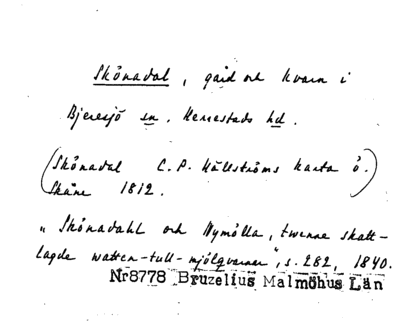 Skönadal, gård och kvarn i
Bjeresjö sn. Herrestads hd.
(Skönadal C.P. Hällströms karta ö.
Skåne 1812.)
"Skönadahl och Nymölla, twenne skatt-
lagde watten-tull-mjölqvarnar", s. 282, 1840.
Nr8778 Bruzelius Malmöhus Län